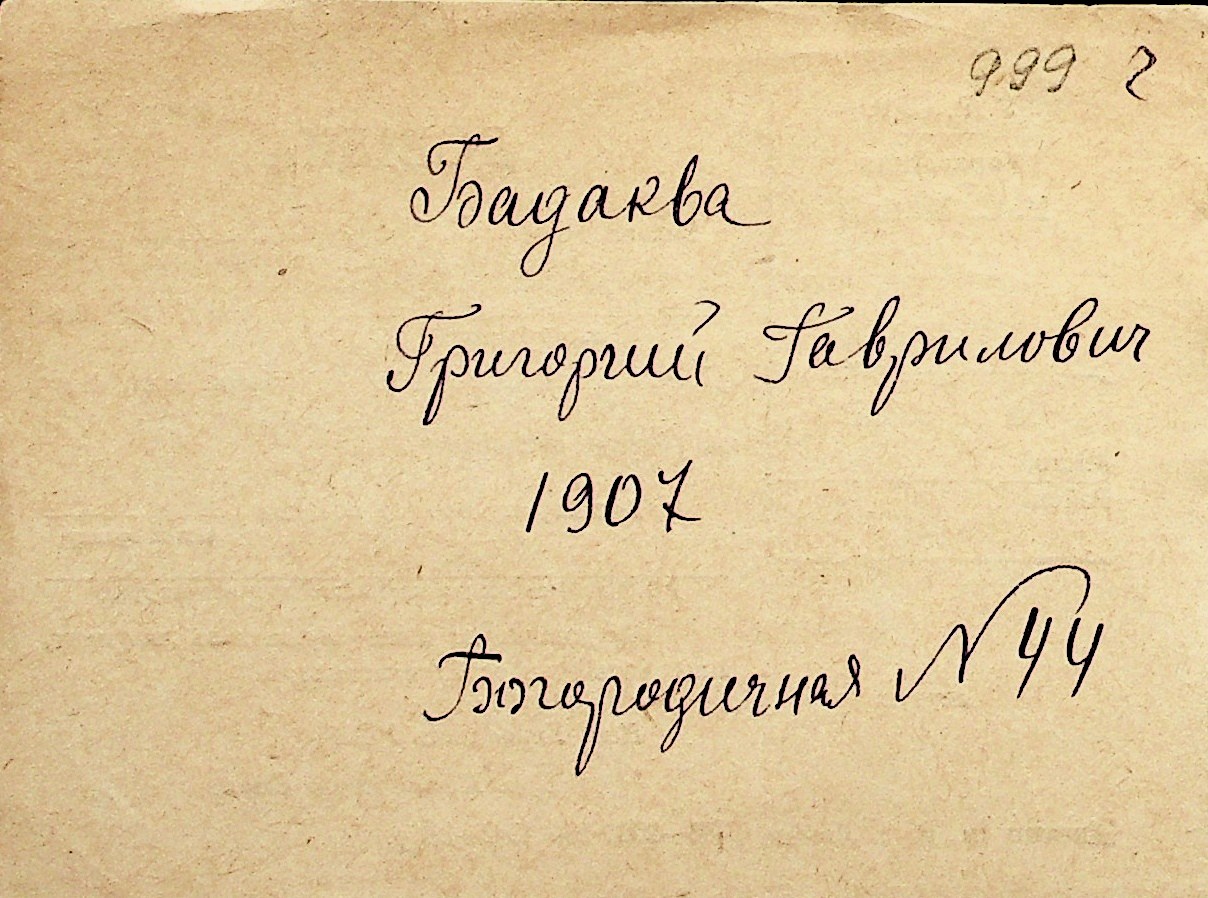 999 2
Бадаква
Григорий Гаврилович
1907
Богородичная N 44